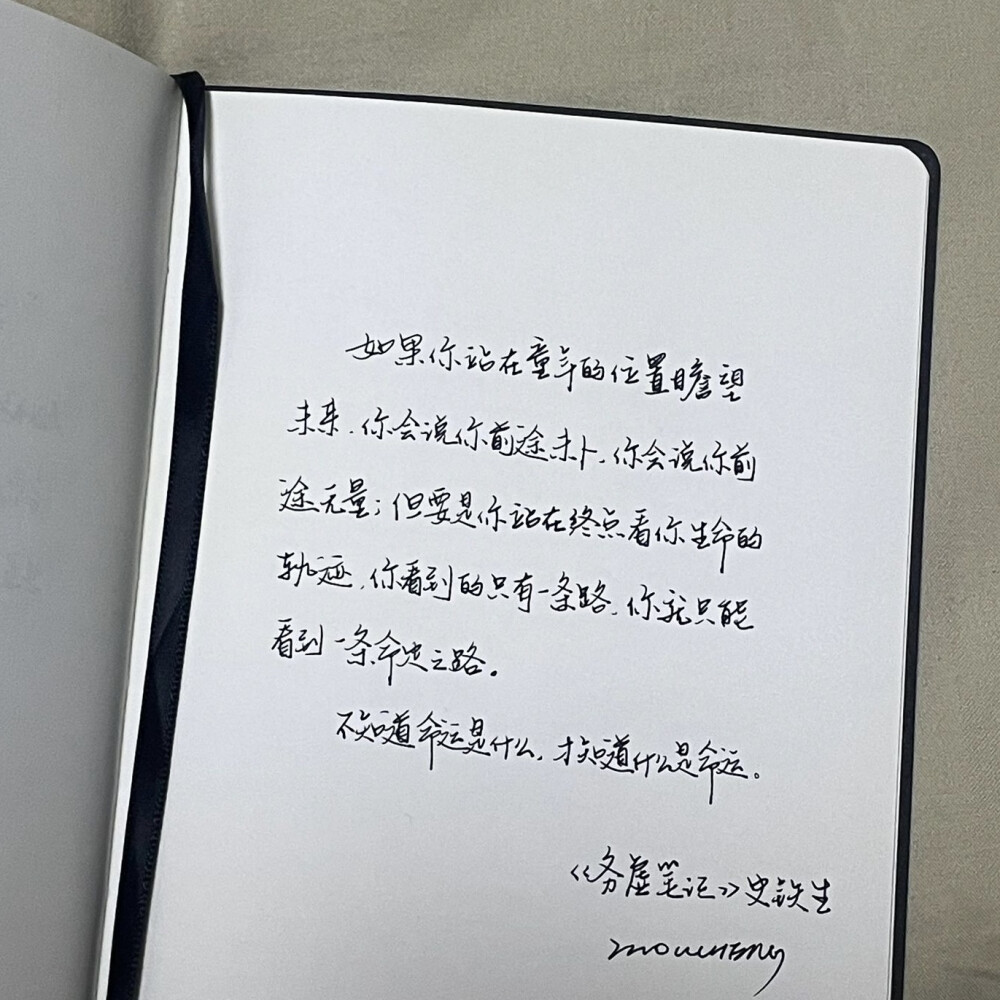 如果你站在童年的位置瞻望
未来,你会说你前途未卜,你会说你前
途无量;但要是你站在终点看你生命的
轨迹,你看到的只有一条路,你就只能
看到一条命定之路。
不知道命运是什么,才知道什么是命运。
《务虚笔记》史铁生